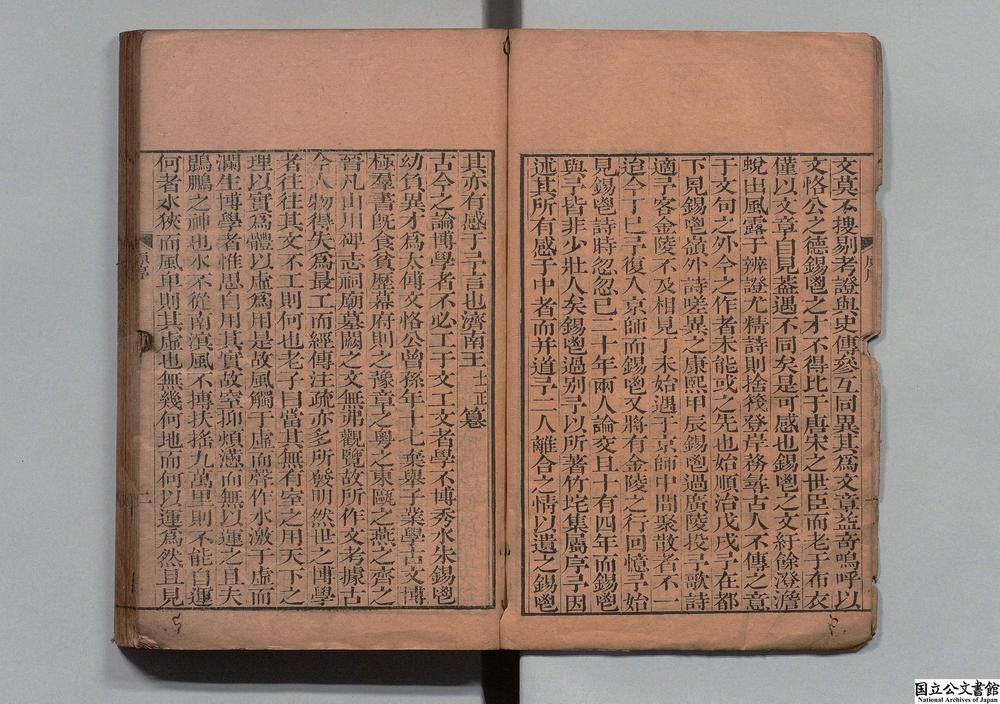 文莫不搜剔考證與史傳參互同異其爲文章益奇嗚呼以
文恪公之德錫鬯之才不得比于唐宋之世臣而老于布衣
僅以文章自見葢遇不同矣是可感也錫鬯之文紆餘澄澹
蛻出風露于辨證尤精詩則捨筏登岸務尋古人不傳之意
于文句之外今之作者未能或之先也始順治戊戌予在都
下見錫鬯嶺外詩嗟異之康熙甲辰錫鬯過廣陵投予歌詩
適予客金陵不及相見丁未始遇于京師中間聚散者不一
迨今丁巳予復入京師而錫鬯又將有金陵之行回憶予始
見錫鬯詩時忽忽已二十年兩人論交且十有四年而錫鬯
與予皆非少壯人矣錫鬯過別予以所著竹垞集屬序予因
述其所有感于中者而幷道予二人離合之情以遺之錫鬯
其亦有感于予言也濟南王士正篹
古今之論博學者不必工于文工文者學不博秀水朱錫鬯
幼負異才爲太傅文恪公曾孫年十七棄舉子業學古文博
極羣書旣食貧歷幕府則之豫章之粵之東甌之燕之齊之
晉凡山川碑志祠廟墓闕之文無弗觀覽故所作文考據古
今人物得失爲最工而經傳注疏亦多所發明然世之博學
者往往其文不工則何也老子曰當其無有室之用天下之
理以實爲體以虛爲用是故風觸于虛而聲作水激于虛而
瀾生博學者惟思自用其實故窒抑煩懣而無以運之且夫
鵾鵬之神也水不從南溟風不摶扶搖九萬里則不能自運
何者水狹而風卑則其虛也無幾何地而何以運爲然且見
原序
二
国立公文書館
National Archives of Japan